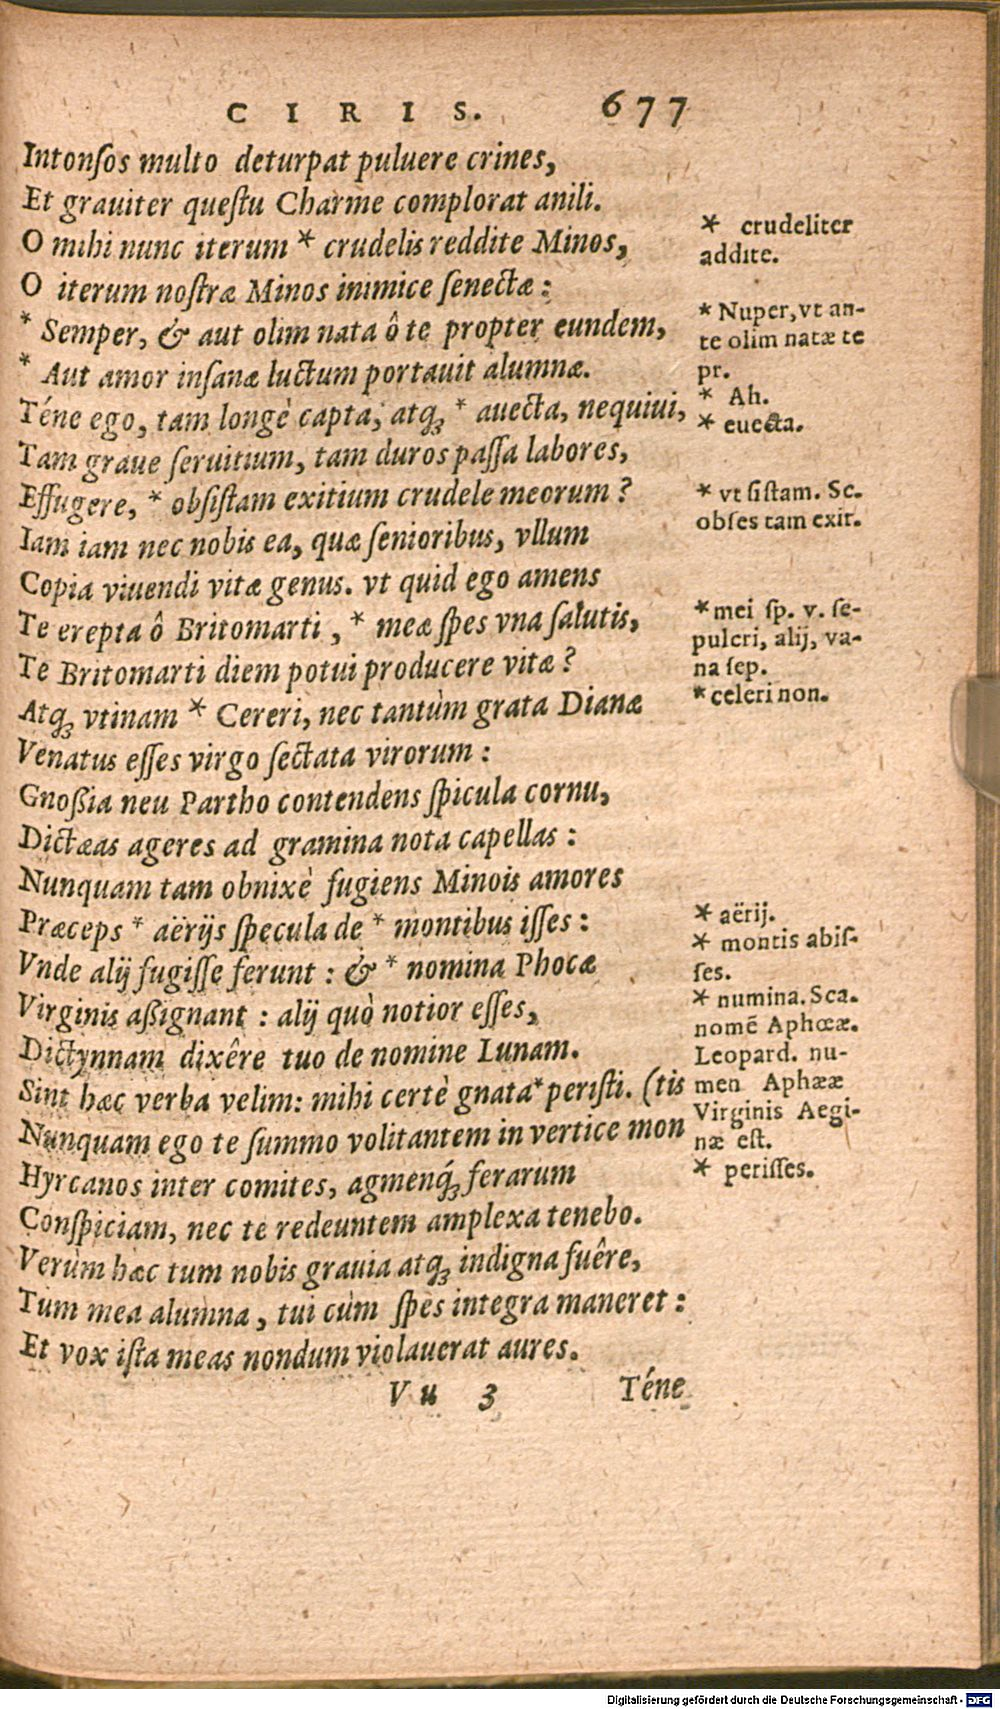 CIRIS. 677
Intonſos multo deturpat puluere crines,
Et grauiter queſtu Charme complorat anili.
O mihi nunc iterum * crudelis reddite Minos,
O iterum noſtræ Minos inimice ſenectæ :
* Semper, & aut olim nata ô te propter eundem,
* Aut amor inſanæ luctum portauit alumnæ.
Téne ego, tam longè capta, atq́ꝫ * auecta, nequiui,
Tam graue ſeruitium, tam duros paſſa labores,
Effugere, * obſiſtam exitium crudele meorum ?
Iam iam nec nobis ea, quæ ſenioribus, vllum
Copia viuendi vitæ genus. vt quid ego amens
Te erepta ô Britomarti, * meæ ſpes vna ſalutis,
Te Britomarti diem potui producere vitæ ?
Atqꝫ vtinam * Cereri, nec tantùm grata Dianæ
Venatus eſſes virgo ſectata virorum :
Gnoßia neu Partho contendens ſpicula cornu,
Dictæas ageres ad gramina nota capellas :
Nunquam tam obnixè fugiens Minois amores
Præceps * aërijs ſpecula de * montibus iſſes :
Vnde alij fugiſſe ferunt : & * nomina Phocæ
Virginis aßignant : alij quò notior eſſes,
Dictynnam dixêre tuo de nomine Lunam.
Sint hæc verba velim: mihi certè gnata * periſti. (tis
Nunquam ego te ſummo volitantem in vertice mon
Hyrcanos inter comites, agmenq́ꝫ ferarum
Conſpiciam, nec te redeuntem amplexa tenebo.
Verùm hæc tum nobis grauia atqꝫ indigna fuêre,
Tum mea alumna, tui cùm ſpes integra maneret :
Et vox iſta meas nondum violauerat aures.
Vu 3 Téne
* crudeliter
addite.
* Nuper, vt an-
te olim natæ te
pr.
* Ah.
* euecta.
* vt ſiſtam. Sc.
obſes tam exit.
* mei ſp. v. ſe-
pulcri, alij, va-
na ſep.
* celeri non.
* aërij.
* montis abiſ-
ſes.
* numina. Sca.
nomē Aphœæ.
Leopard. nu-
men Aphææ
Virginis Aegi-
næ eſt.
* periſſes.
Digitalisierung gefördert durch die Deutsche Forschungsgemeinschaft - DFG